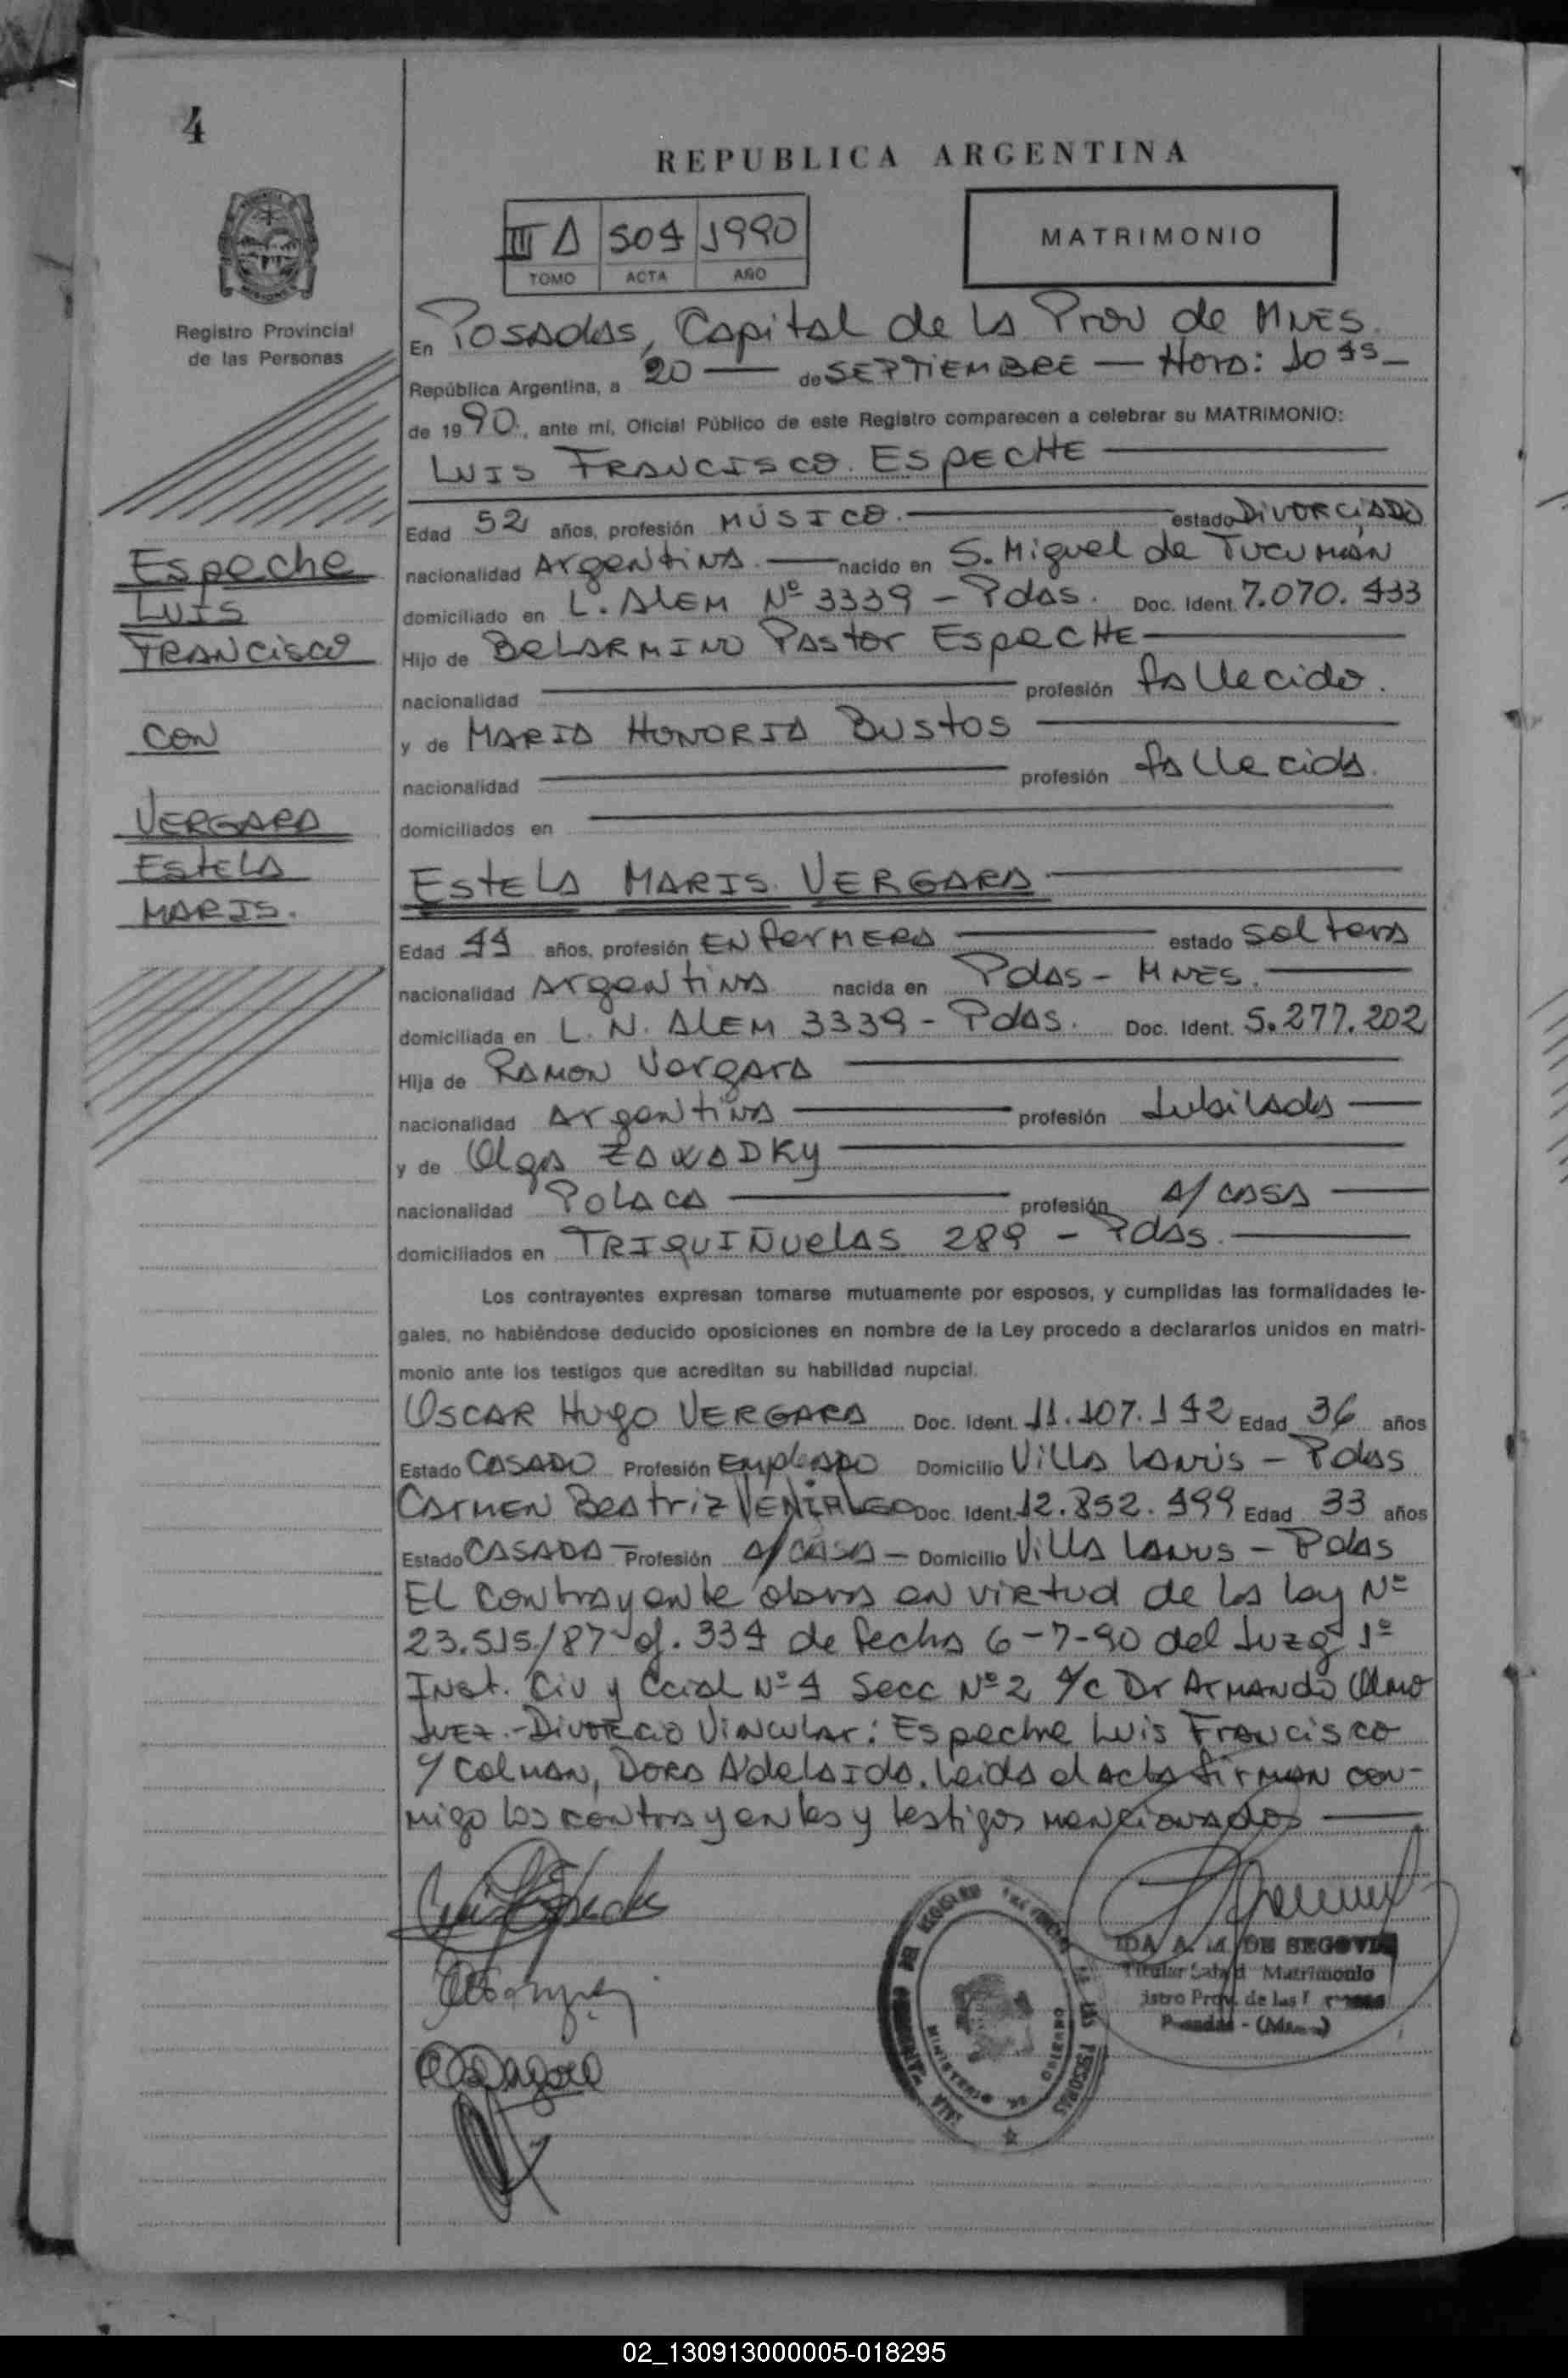 4
REPUBLICA ARGENTINA
III A 504 1990
TOMO ACTA AÑO
MATRIMONIO
Registro Provincial
de las Personas
En Posadas, Capital de la Prov de Mnes.
República Argentina, a 20 — de SEPTIEMBRE — Hora: 10 45 —
de 1990, ante mí, Oficial Público de este Registro comparecen a celebrar su MATRIMONIO:
LUIS FRANCISCO ESPECHE
Edad 52 años, profesión MÚSICO. estado DIVORCIADO
nacionalidad Argentina. nacido en S. Miguel de Tucumán
domiciliado en L. ALEM Nº 3339 - Pdas. Doc. Ident. 7.070.433
Hijo de BELARMINO Pastor EspeCHE
nacionalidad profesión fallecido.
y de MARIA HONORIA Bustos
nacionalidad profesión fallecida.
domiciliados en
Espeche
LUIS
FRANCISCO
CON
VERGARA
ESTELA
MARIS.
ESTELA MARIS VERGARA
Edad 44 años, profesión ENFERMERA estado Soltera
nacionalidad Argentina nacida en Pdas - MNES.
domiciliada en L. N. ALEM 3339 - Pdas. Doc. Ident. 5.277.202
Hija de RAMON Vergara
nacionalidad Argentina profesión Jubilada
y de Olga ZAWADKY
nacionalidad POLACA profesión A/ CASA
domiciliados en TRIQUIÑUELAS 289 - Pdas.
Los contrayentes expresan tomarse mutuamente por esposos, y cumplidas las formalidades le-
gales, no habiéndose deducido oposiciones en nombre de la Ley procedo a declararlos unidos en matri-
monio ante los testigos que acreditan su habilidad nupcial.
OSCAR HUGO VERGARA Doc. Ident. 11.107.142 Edad 36 años
Estado CASADO Profesión EMPLEADO Domicilio Villa Lanús - Pdas
CARMEN Beatriz Doc. Ident. 12.852.499 Edad 33 años
Estado CASADA - Profesión A/ CASA - Domicilio Villa Lanus - Pdas
EL contrayente obra en virtud de la Ley Nº
23.515/87 of. 334 de fecha 6-7-90 del Juzg 1º
Inst. Civ y Ccial Nº 4 Secc Nº 2 A/C Dr ARMANDO Olmo
JUEZ.- DIVORCIO VINCULAR: Espeche Luis Francisco
y/ Colman, Dora Adelaida. Leida el acta firman con-
migo los contrayentes y testigos mencionados
IDA A. M. DE SEGOVIA
Titular Sala Matrimonio
Prov. de las
Posadas -
MINISTERIO DE GOBIERNO
02_130913000005-018295